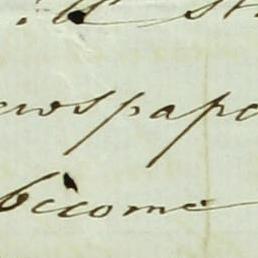 newspape
become